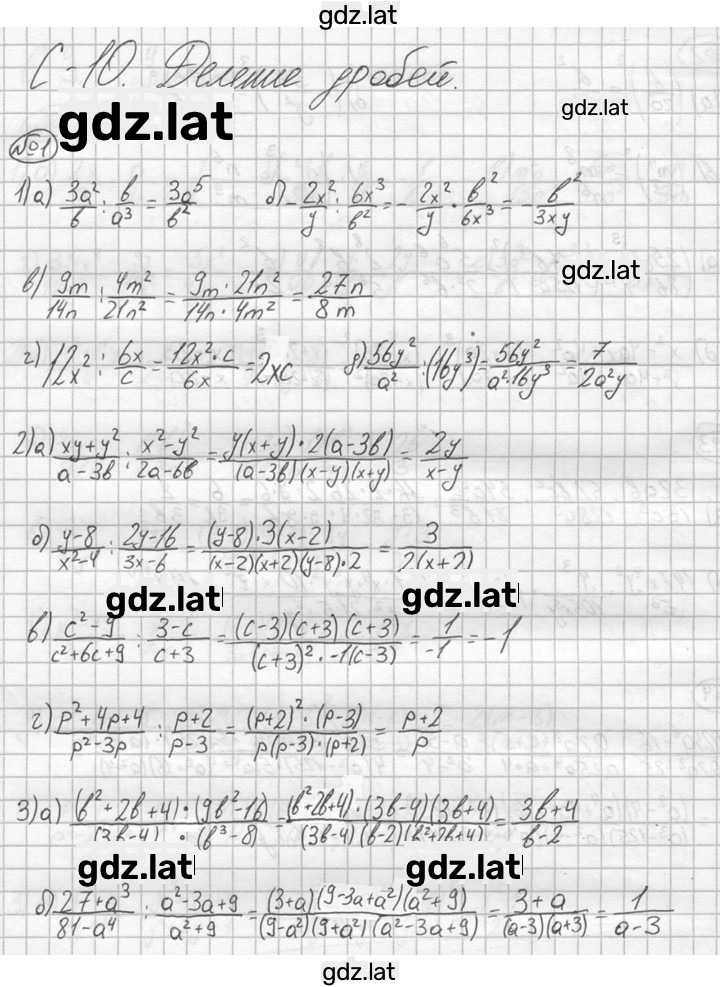 gdz.lat
С-10. Деление дробей.
gdz.lat
gdz.lat
№1
1) а) 3a²/b : b/a³ = 3a⁵/b² б) -2x²/y : 6x³/b² = -2x²/y · b²/6x³ = -b²/3xy
gdz.lat
в) 9m/14n : 4m²/21n² = 9m · 21n²/14n · 4m² = 27n/8m
г) 12x² : 6x/c = 12x² · c/6x = 2xc д) 56y²/a² : (16y³) = 56y²/a² · 16y³ = 7/2a²y
2) а) xy+y²/a-3b : x²-y²/2a-6b = y(x+y) · 2(a-3b)/(a-3b)(x-y)(x+y) = 2y/x-y
б) y-8/x²-4 : 2y-16/3x-6 = (y-8) · 3(x-2)/(x-2)(x+2)(y-8) · 2 = 3/2(x+2)
gdz.lat
gdz.lat
в) c²-9/c²+6c+9 : 3-c/c+3 = (c-3)(c+3)(c+3)/(c+3)² · -1(c-3) = 1/-1 = -1
г) p²+4p+4/p²-3p : p+2/p-3 = (p+2)² · (p-3)/p(p-3) · (p+2) = p+2/p
3) а) (b²+2b+4) · (9b²-16)/(3b-4) · (b³-8) = (b²+2b+4) · (3b-4)(3b+4)/(3b-4)(b-2)(b²+2b+4) = 3b+4/b-2
gdz.lat
gdz.lat
б) 27+a³/81-a⁴ : a²-3a+9/a²+9 = (3+a)(9-3a+a²)(a²+9)/(9-a²)(9+a²)(a²-3a+9) = 3+a/(a-3)(a+3) = 1/a-3
gdz.lat